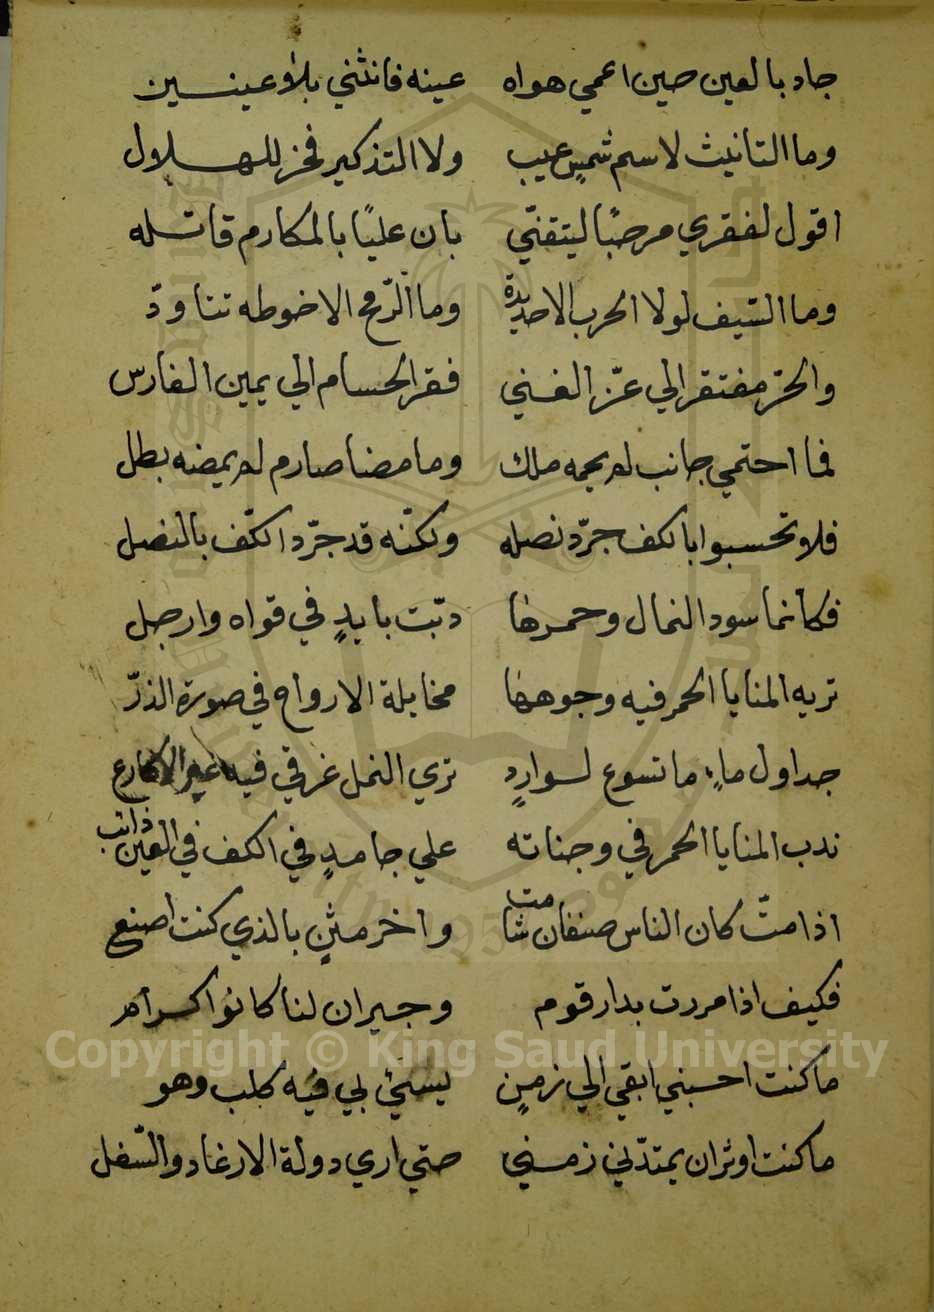 جاد بالعين حين اعمي هواه عينه فانثني بلا عينـــين
وما التانيث لاسم شمسٍ عيب ولا التذكير فخر للهــلال
اقول لفقري مرحبًا ليتقنّي بان عليًا بالمكارم قاتله
وما السّيف لولا الحرب الا حديدة وما الرّمح الا خوطه تتاودّ
والحرّ مفتقر الي عزّ الغني فقر الحسام الي يمين الفارس
فما احتمي جانب لم يحمه ملك وما مضا صارم لم يمضه بطل
فلا تحسبوا بالكف جرّد نصله ولكنّه قد جرّد الكّف بالنصل
فكانما سود النمال وحمرها دبّت بايدٍ في قواه وارجل
تريه المنايا الحمر فيه وجوهها مخايلة الارواح في صورة الذرّ
جداول ماءٍ ما تسوع لـواردٍ تري النمل غرقي فيه غير الاكارع
ندب المنايا الحمر في وجناته علي جامدٍ في الكف في العين ذائب
اذا متّ كان الناس صنفان شامت واخر مثنٍ بالذي كنت اصنع
فكيف اذا مررت بدار قوم وجيران لنا كانوا كــرام
ما كنت احسبني ابقي الي زمنٍ يسئ بي فيه كلب وهو
ما كنت اوثر ان يمتدّ لي زمــني حتي اري دولة الارغاد والسّفل
Copyright © King Saud University